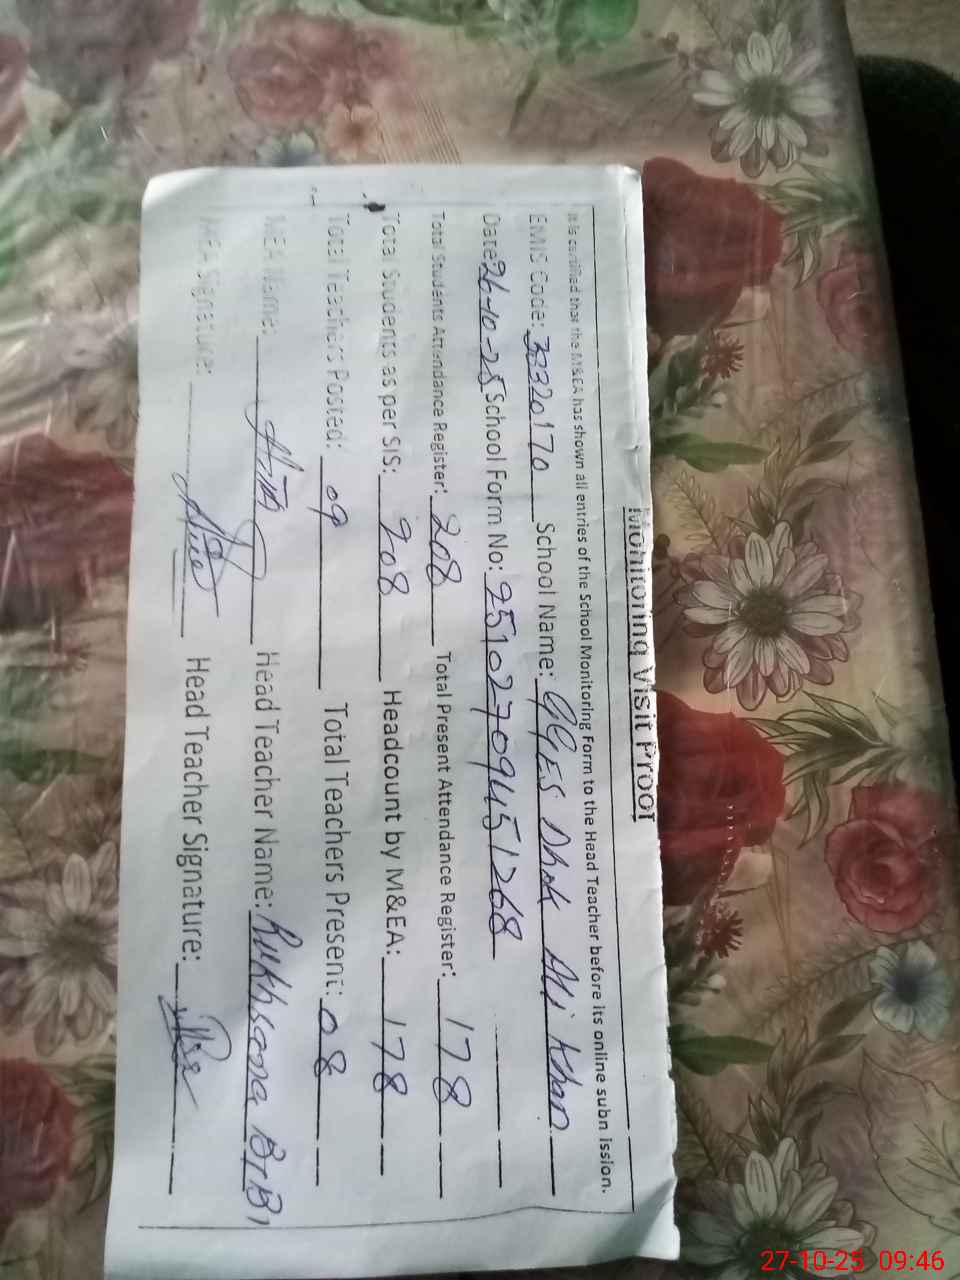 Monitoring Visit Proof
It is certified that the M&EA has shown all entries of the School Monitoring Form to the Head Teacher before its online subn ission.
EMIS Code: 37320170 School Name: GGES Dhok Ali Khan
Date: 26-10-25 School Form No: 25102709451268
Total Students Attendance Register: 208 Total Present Attendance Register: 178
Total Students as per SIS: 208 Headcount by M&EA: 178
Total Teachers Posted: 09 Total Teachers Present: 08
MEA Name: Head Teacher Name: Rukhsana BiBi
MEA Signature: Head Teacher Signature:
27-10-25 09:46